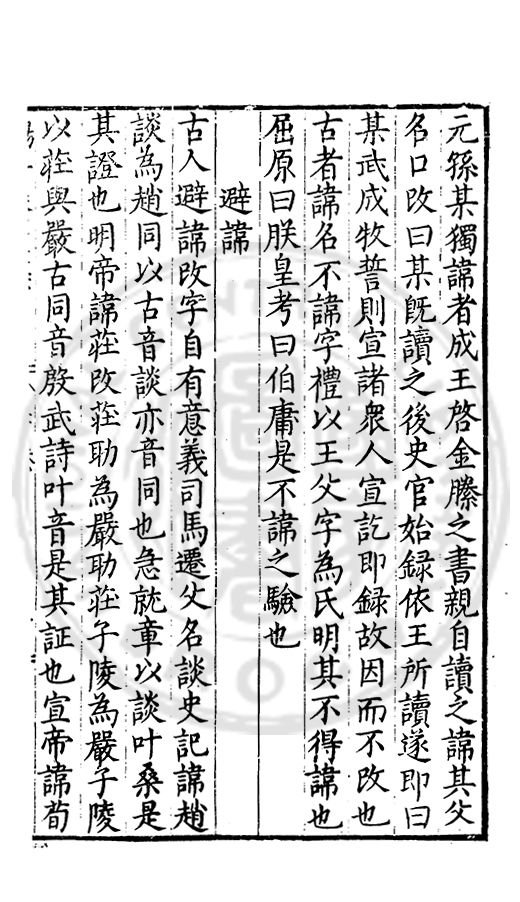 元孫某獨諱者成王啓金縢之書親自讀之諱其父
名口改曰某旣讀之後史官始録依王所讀遂即曰
某武成牧誓則宣諸衆人宣訖即録故因而不改也
古者諱名不諱字禮以王父字為氏明其不得諱也
屈原曰朕皇考曰伯庸是不諱之驗也
避諱
古人避諱改字自有意義司馬遷父名談史記諱趙
談為趙同以古音談亦音同也急就章以談叶桑是
其證也明帝諱莊改莊助為嚴助莊子陵為嚴子陵
以莊與嚴古同音殷武詩叶音是其証也宣帝諱荀